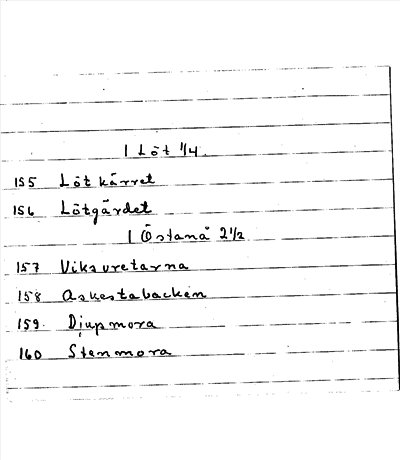 1 Löt 1/4.
155 Lötkärret
156 Lötgärdet
1 Östanå 2 1/2
157 Viksuretarna
158 Askestabacken
159. Djupmora
160 Stenmora